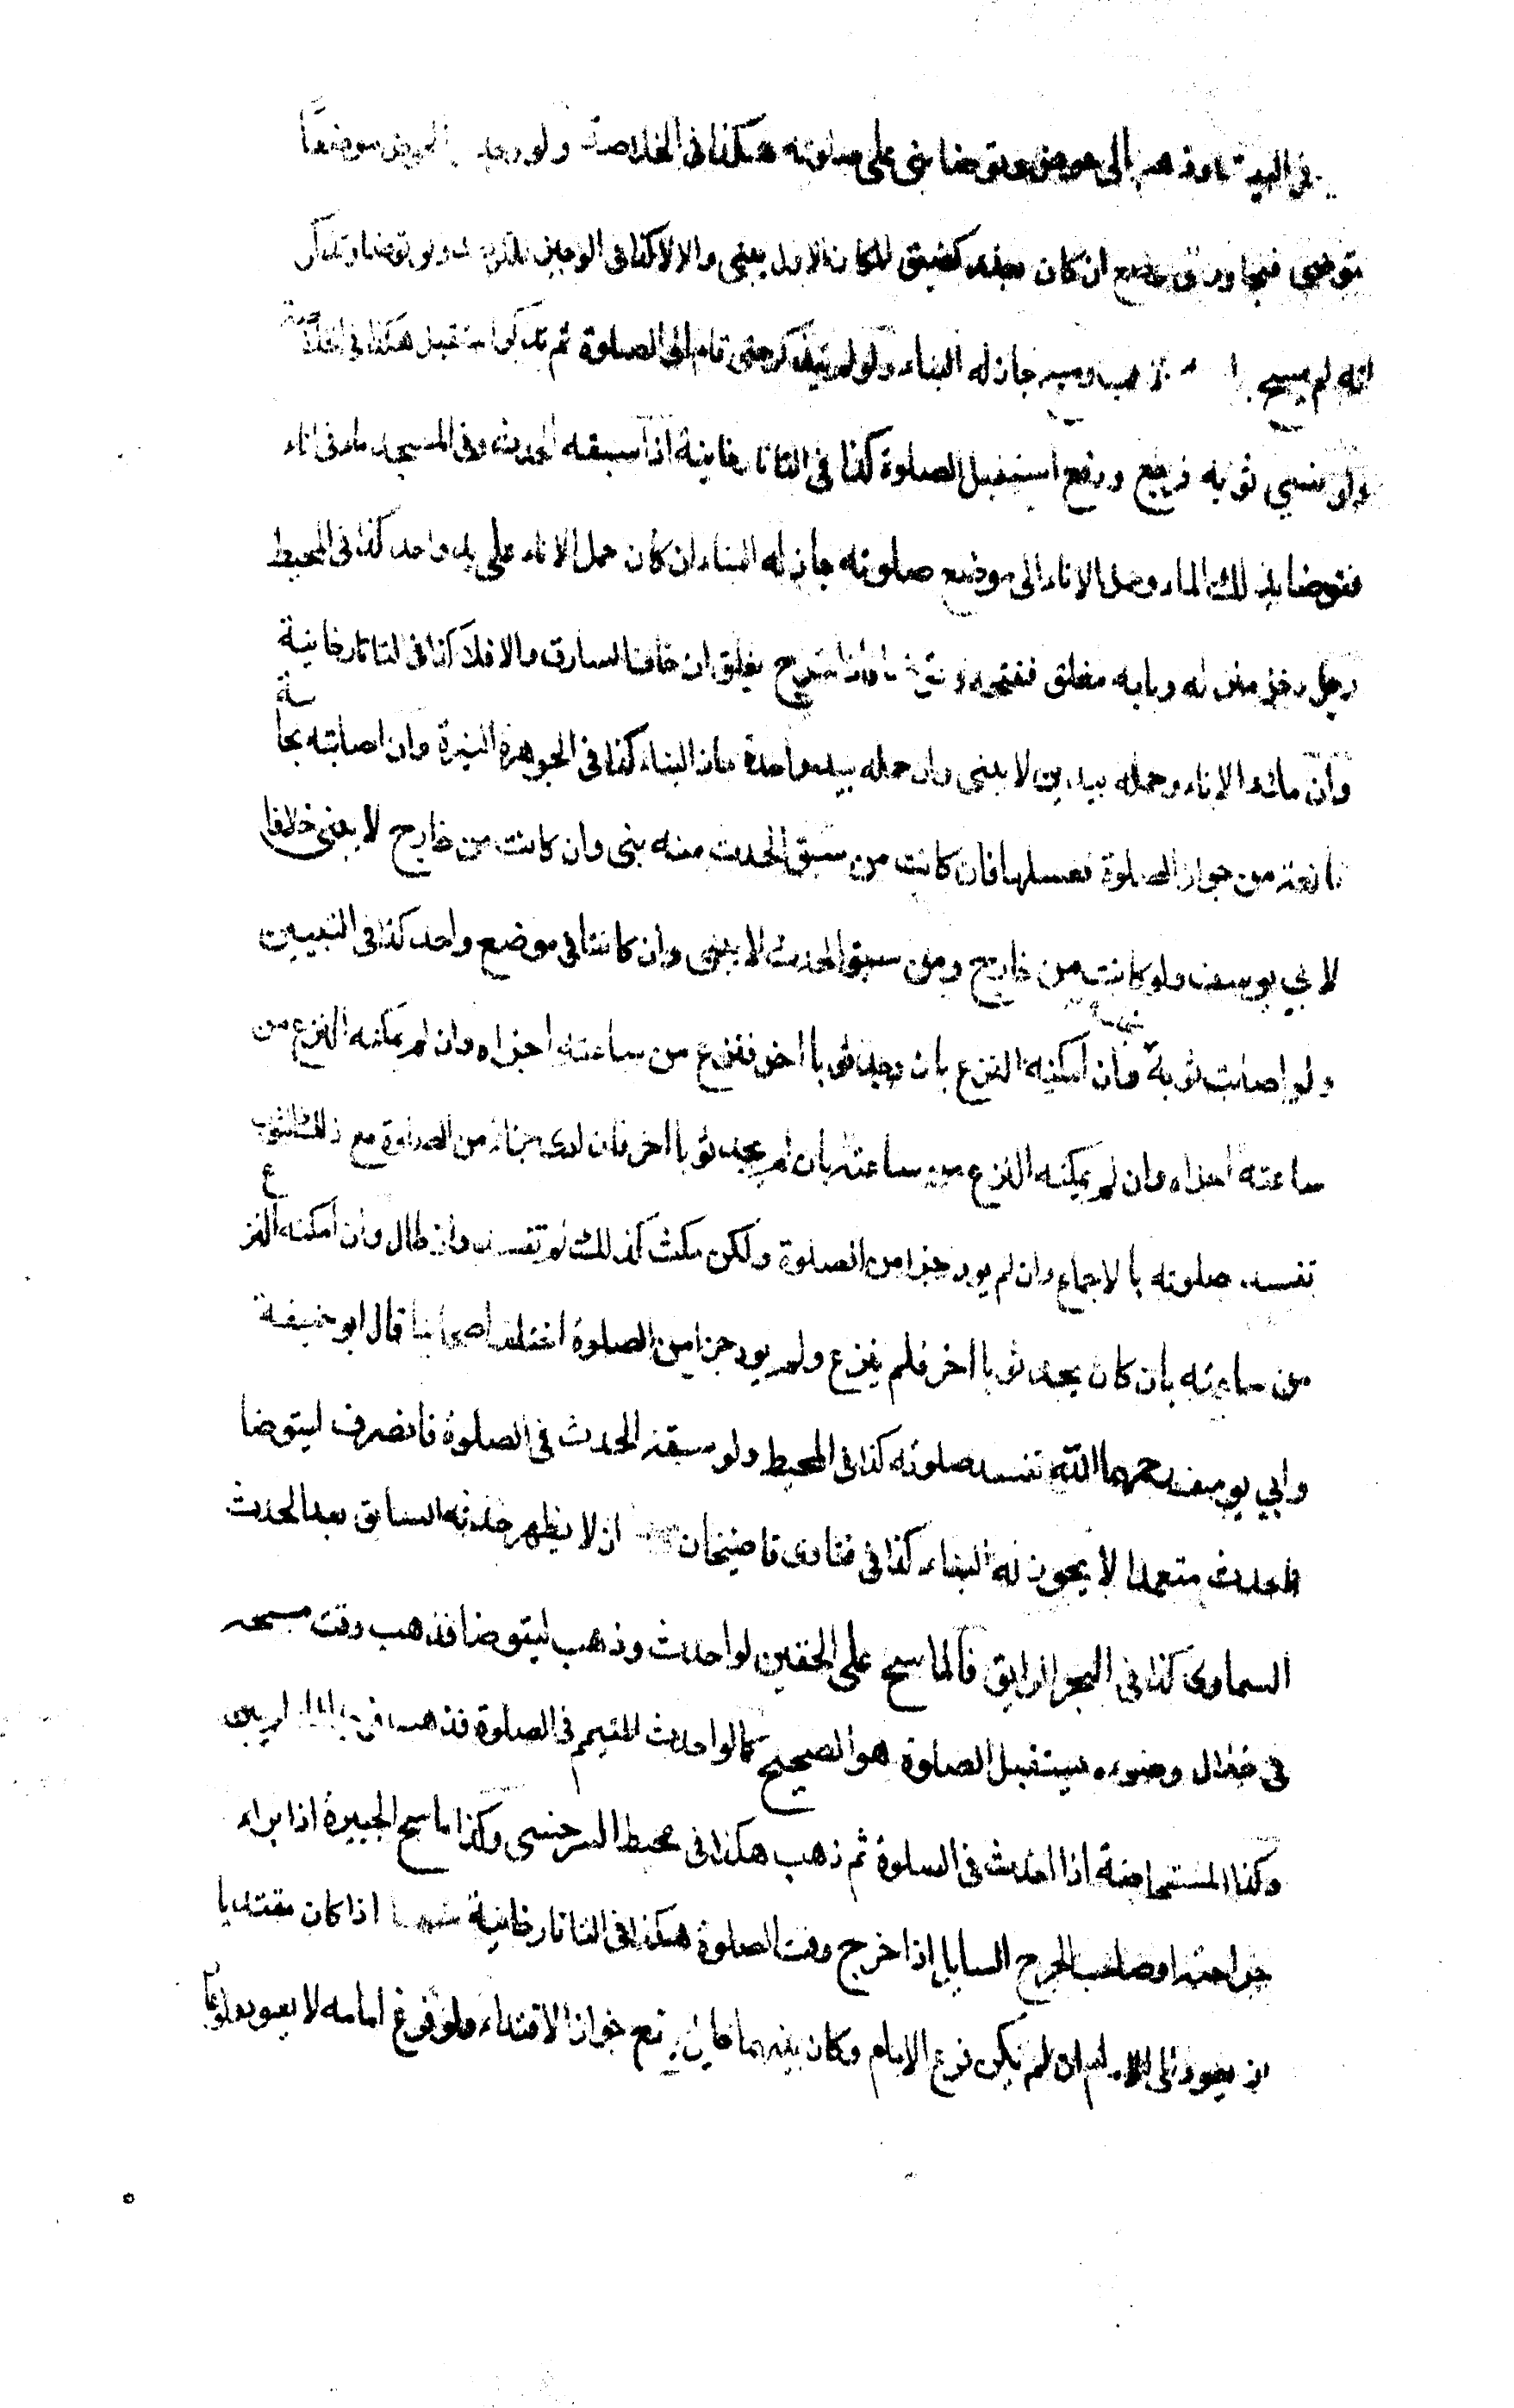 في البيت وذهب الى حوض وتوضا بنى على صلوته هكذا في الخلاصة ولو وجد في الحوض موضعا
متوضى فتجاوز الى موضع ان كان بعذر كضيق المكان الاول يبني والا لا كذا في الوجيز ولو توضا وتذكر
انه لم يمسح فذهب ومسح جاز له البناء ولو لم يتذكر حتى قام الى الصلوة ثم تذكر استقبل هكذا في الخلاصة
ولو نسي ثوبه فرجع ورفع استقبل الصلوة كذا في التاتارخانية اذا سبقه الحدث وفي المسجد ماء في اناء
فتوضا بذلك الماء وحمل الاناء الى موضع صلوته جاز له البناء ان كان حمل الاناء على يد واحد كذا في المحيط
رجل دخل منزله وبابه مغلق ففتحه وتوضا فاذا خرج يغلق ان خاف السارق والا فلا كذا في التاتارخانية
وان ملأ الاناء وحمله بيدين لا يبني وان حمله بيد واحدة جاز البناء كذا في الجوهرة النيرة وان اصابته نجاسة
مانعة من جواز الصلوة فغسلها فان كانت من سبق الحدث منه بنى وان كانت من خارج لا يبني خلافا
لابي يوسف ولو كانت من خارج ومن سبق الحدث لا يبنى وان كانتا في موضع واحد كذا في التبيين
ولو اصابت ثوبه نجاسة فان امكنه النزع بان وجد ثوبا اخر فنزع من ساعته اجزاه وان لم يمكنه النزع من
ساعته اجزاه وان لم يمكنه النزع من ساعته بان لم يجد ثوبا اخر فان ادى جزاء من الصلوة مع ذلك الثوب
تفسد صلوته بالاجماع وان لم يود جزا من الصلوة ولكن مكث كذلك لم تفسد وان طال وان امكنه النزع
من ساعته بان كان يجد ثوبا اخر فلم ينزع ولم يود جزا من الصلوة اختلف اصحابنا قال ابو حنيفة
وابي يوسف رحمهما الله تفسد صلوته كذا في المحيط ولو سبقه الحدث في الصلوة فانصرف ليتوضا
فاحدث متعمدا لا يجوز له البناء كذا في فتاوى قاضيخان ان لا يظهر حدثه السابق بعد الحدث
السماوى كذا في البحر الرايق فالماسح على الخفين لو احدث وذهب ليتوضا فذهب وقت مسحه
في خلال وضوءه يستقبل الصلوة هو الصحيح كما لو احدث المتيمم في الصلوة فذهب فوجد الماء لم يبن
وكذا المستحاضة اذا احدث في الصلوة ثم ذهب هكذا في محيط السرخسى وكذا ماسح الجبيرة اذا براء
جراحته او صاحب الجرح السايل اذا خرج وقت الصلوة هكذا في التاتارخانية اذا كان مقتديا
ان يعود الى الامام ان لم يكن فرغ الامام وكان بينهما حايل يمنع جواز الاقتداء ولو فرغ امامه لا يعود